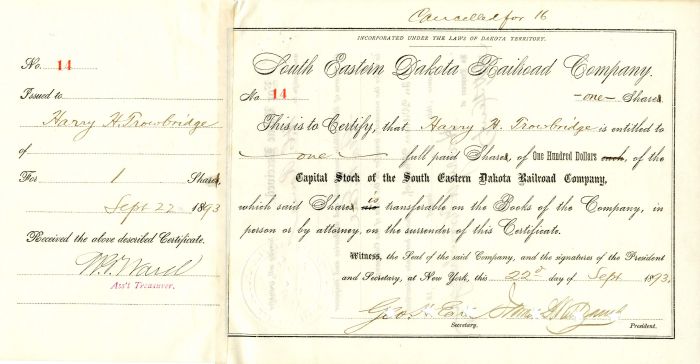 Cancelled for 16
No. 14
Issued to
Harry H. Trowbridge
of
For 1 Shares
Sept 22 1893
Received the above described Certificate.
Ass't Treasurer.
INCORPORATED UNDER THE LAWS OF DAKOTA TERRITORY.
South Eastern Dakota Railroad Company.
No 14 -one- Shares
This is to Certify, that Harry H. Trowbridge is entitled to
one full paid Shares, of One Hundred Dollars each, of the
Capital Stock of the South Eastern Dakota Railroad Company,
which said Shares is are transferable on the Books of the Company, in
person or by attorney, on the surrender of this Certificate.
Witness, the Seal of the said Company, and the signatures of the President
and Secretary, at New York, this 22d day of Sept 1893.
Secretary. President.